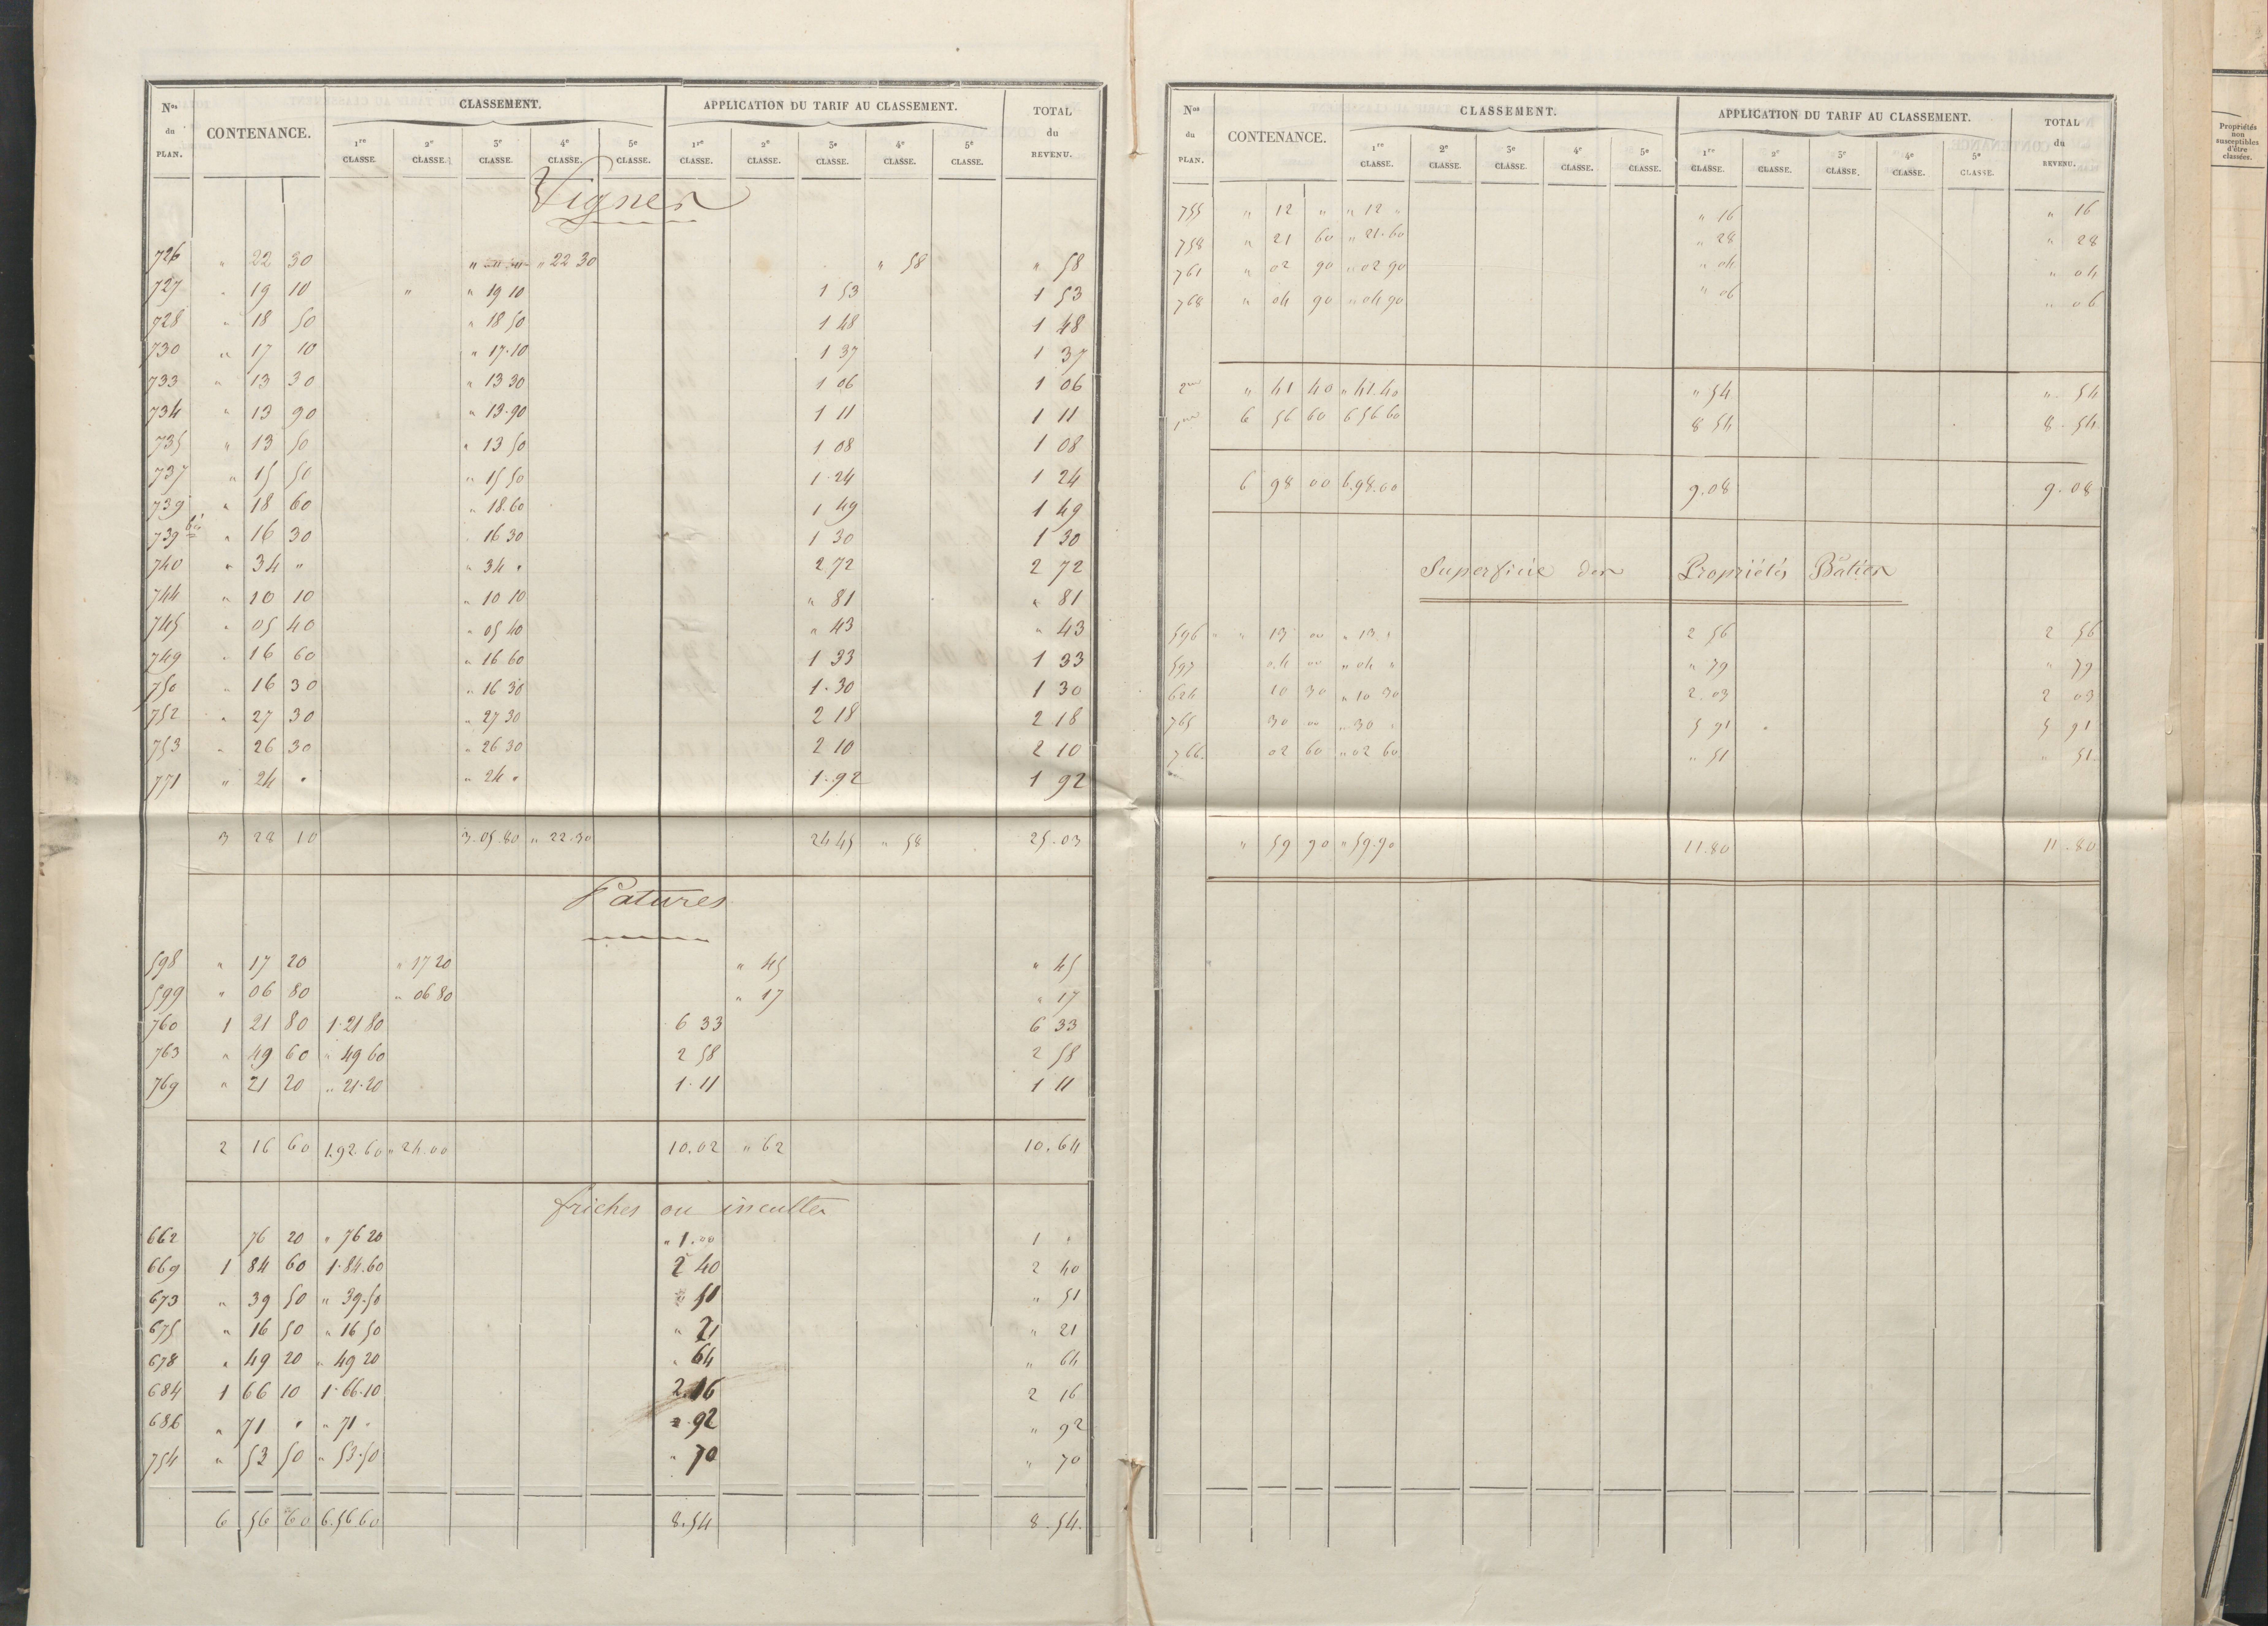 Nos du PLAN. CONTENANCE. CLASSEMENT. APPLICATION DU TARIF AU CLASSEMENT. TOTAL du REVENU.
1re CLASSE. 2e CLASSE. 3e CLASSE. 4e CLASSE. 5e CLASSE. 1re CLASSE. 2e CLASSE. 3e CLASSE. 4e CLASSE. 5e CLASSE.
Vignes
726 " 22 30 " " 22 30 " 58 " 58
727 " 19 10 " " 19 10 1 53 1 53
728 " 18 50 " 18 50 1 48 1 48
730 " 17 10 " 17.10 1 37 1 37
733 " 13 30 " 13 30 1 06 1 06
734 " 13 90 " 13.90 1 11 1 11
735 " 13 50 " 13 50 1 08 1 08
737 " 15 50 " 15 50 1.24 1 24
739 " 18 60 " 18.60 1 49 1 49
739 bis " 16 30 " 16 30 1 30 1 30
740 " 34 " " 34 " 2 72 2 72
744 " 10 10 " 10 10 " 81 " 81
745 " 05 40 " 05 40 " 43 " 43
749 " 16 60 " 16 60 1 33 1 33
750 " 16 30 " 16 30 1.30 1 30
752 " 27 30 " 27 30 2 18 2 18
753 " 26 30 " 26 30 2 10 2 10
771 " 24 " " 24 " 1.92 1 92
3 28 10 3.05.80 " 22.30 24 45 " 58 25.03
Pâtures
598 " 17 20 " 17 20 " 45 " 45
599 " 06 80 " 06 80 " 17 " 17
760 1 21 80 1.21 80 6 33 6 33
763 " 49 60 " 49 60 2 58 2 58
769 " 21 20 " 21.20 1.11 1 11
2 16 60 1.92.60 " 24.00 10.02 " 62 10.64
friches ou incultes
662 76 20 " 76 20 " 1.00 1 "
669 1 84 60 1.84.60 2 40 2 40
673 " 39 50 " 39.50 " 51 " 51
675 " 16 50 " 16 50 " 21 " 21
678 " 49 20 " 49 20 " 64 " 64
684 1 66 10 1.66.10 2.16 2 16
686 " 71 " " 71 " " 92 " 92
754 " 53 50 " 53.50 " 70 " 70
6 56 60 6.56 60 8.54 8.54.
Nos du PLAN. CONTENANCE. CLASSEMENT. APPLICATION DU TARIF AU CLASSEMENT. TOTAL du REVENU.
1re CLASSE. 2e CLASSE. 3e CLASSE. 4e CLASSE. 5e CLASSE. 1re CLASSE. 2e CLASSE. 3e CLASSE. 4e CLASSE. 5e CLASSE.
755 " 12 " " 12 " " 16 " 16
758 " 21 60 " 21.60 " 28 " 28
761 " 02 90 " 02 90 " 04 " 04
768 " 04 90 " 04 90 " 06 " 06
2me " 41 40 " 41.40 " 54 " 54
1re 6 56 60 6 56 60 8 54 8.54
6 98 00 6.98.00 9.08 9.08
Superficie des Propriétés Bâties
596 " " 13 00 " 13 " 2 56 2 56
597 04 00 " 04 " " 79 " 79
624 10 30 " 10 30 2.03 2 03
765 30 00 " 30 " 5 91 5 91
766 02 60 " 02 60 " 51 " 51
" 59 90 " 59.90 11.80 11.80
Propriétés
non
susceptibles
d'être
classées.